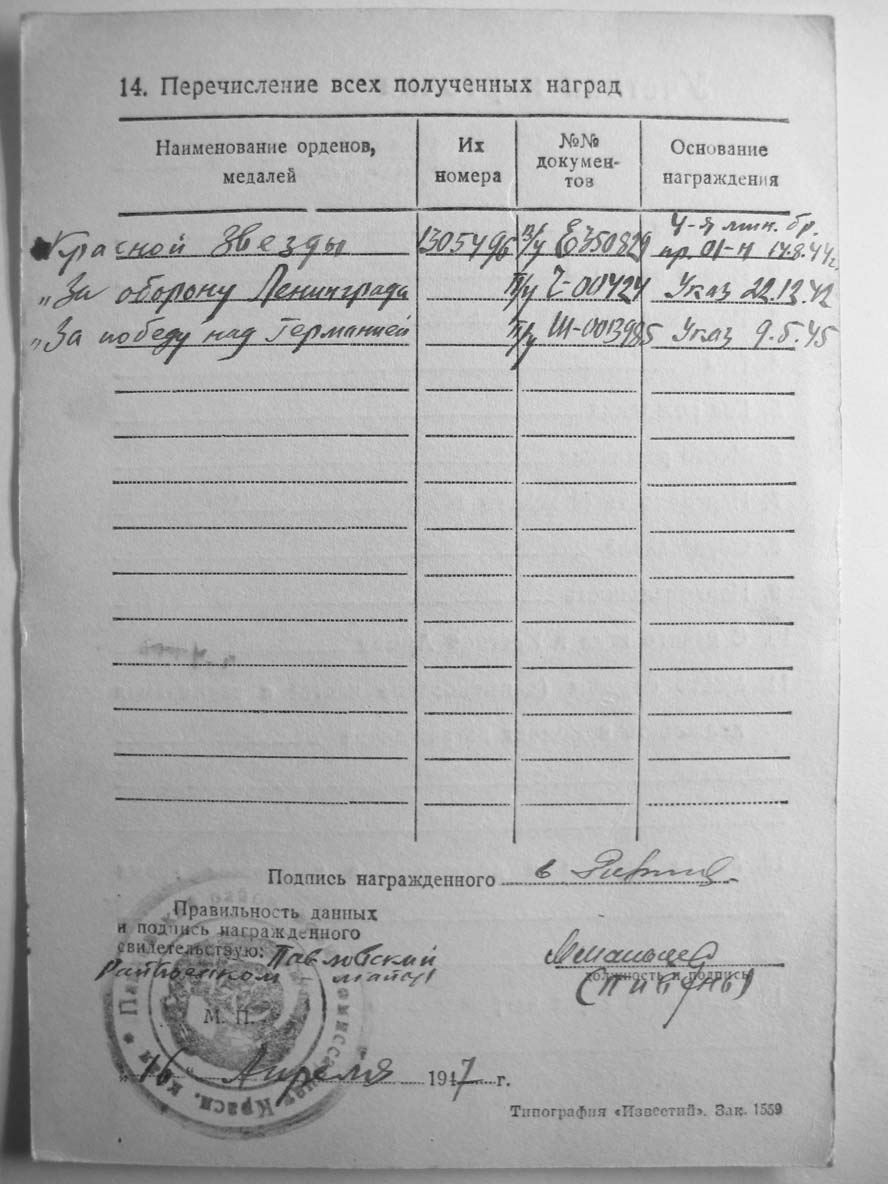 14. Перечисление всех полученных наград
Наименование орденов, медалей
Их номера
№№ докумен-тов
Основание награждения
Красной Звезды 1305496 в/у Е350829 4-я мин. бр. пр. 01-н 14.8.44г.
„За оборону Ленинграда п/у Ч-00424 Указ 22.12.42
„За победу над Германией п/у Ш-0013985 Указ 9.5.45
Подпись награжденного
Правильность данных
и подпись награжденного
свидетельствую: Павловский
Райвоенком майор
должность и подпись
М. П.
„16 Апреля 1947 г.
Типография «Известий». Зак. 1559